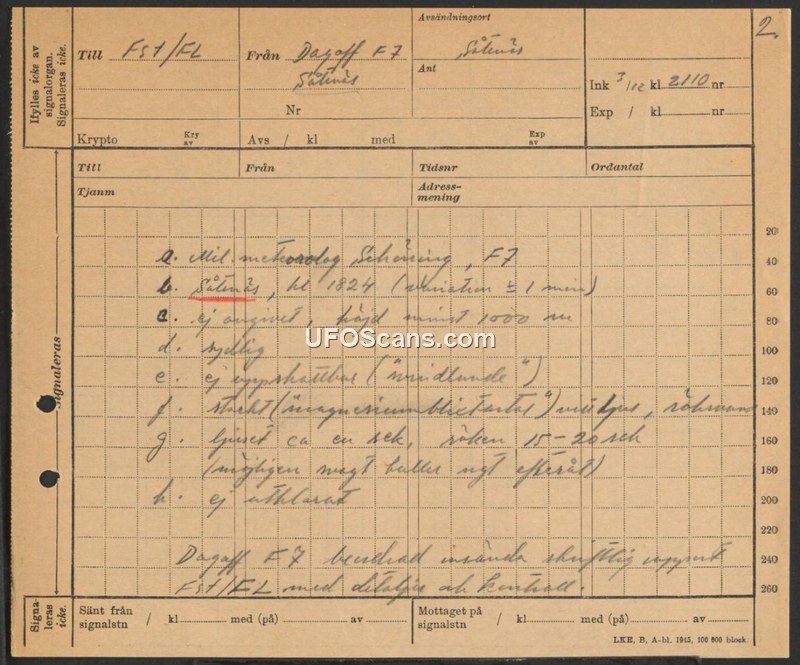 2.
Ifylles icke av
signalorgan.
Signaleras icke.
Till Fst/FL
Från Dagoff F 7
Såtenäs
Nr
Avsändningsort
Såtenäs
Ant
Ink 3/12 kl 2110 nr
Exp / kl nr
Krypto Kry av
Avs / kl med Exp av
Till Från Tidsnr Ordantal
Tjanm Adress-
mening
Signaleras
20
a. Mil. meteorolog Schöning, F7 40
b. Såtenäs, kl 1824 (variation ± 1 min) 60
c. ej angivet, höjd minst 1000 m 80
UFOScans.com
d. sydlig 100
e. ej uppskattbar ("vindlande") 120
f. starkt ("magnesiumblixtartat") vitt ljus, 140
g. ljuset ca en sek, röken 15-20 sek 160
(möjligen svagt buller ngt efteråt) 180
h. ej utklarat 200
Dagoff F7 beordrad insända skriftlig rapport 240
Fst/FL med detaljer och kontroll. 260
Signa-
leras
icke.
Sänt från
signalstn / kl med (på) av
Mottaget på
signalstn / kl med (på) av
LKE, B, A-bl. 1945, 100 600 block.